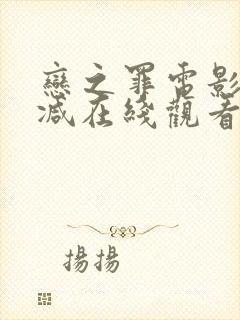 戀之罪電影
減在綫觀看
揚揚